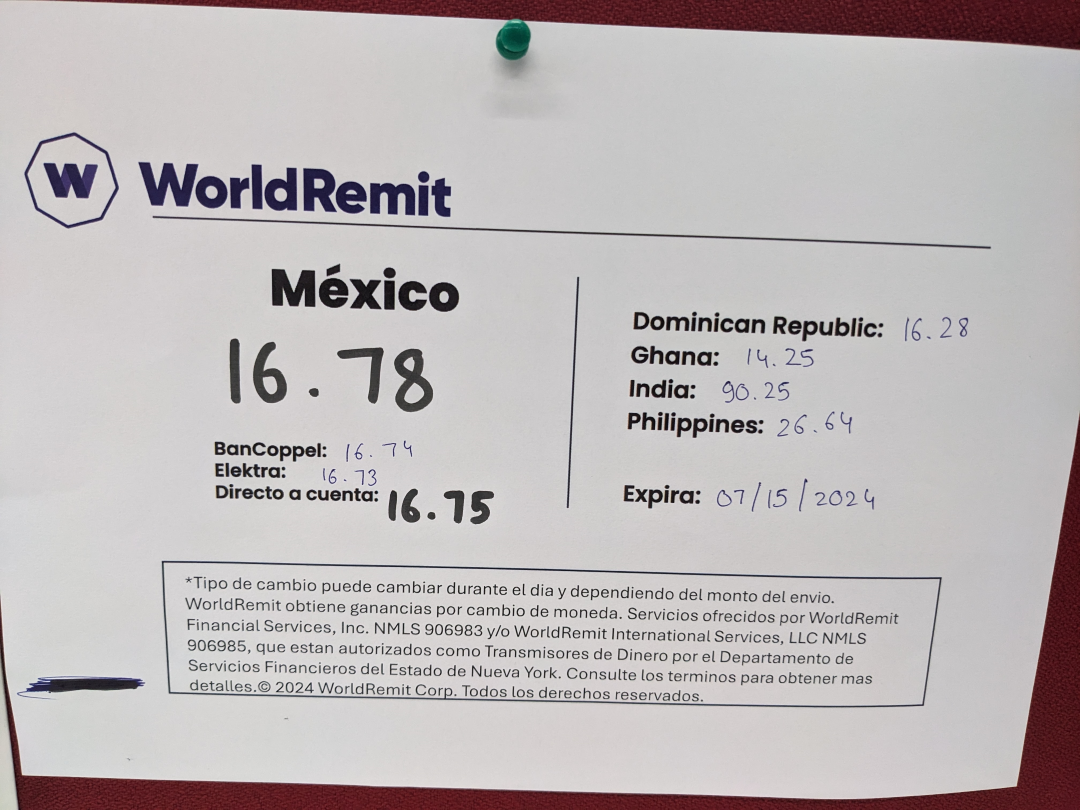 W WorldRemit
México
16.78
BanCoppel: 16.74
Elektra: 16.73
Directo a cuenta: 16.75
Dominican Republic: 16.28
Ghana: 14.25
India: 90.25
Philippines: 26.64
Expira: 07/15/2024
*Tipo de cambio puede cambiar durante el dia y dependiendo del monto del envio.
WorldRemit obtiene ganancias por cambio de moneda. Servicios ofrecidos por WorldRemit
Financial Services, Inc. NMLS 906983 y/o WorldRemit International Services, LLC NMLS
906985, que estan autorizados como Transmisores de Dinero por el Departamento de
Servicios Financieros del Estado de Nueva York. Consulte los terminos para obtener mas
detalles.© 2024 WorldRemit Corp. Todos los derechos reservados.